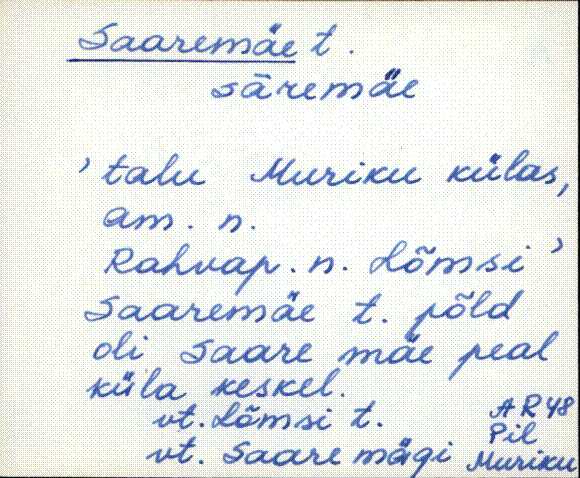 Saaremäe t.
säremäe
' talu Muriku külas,
am. n.
Rahvap. n. Lõmsi '
Saaremäe t. põld
oli Saare mäe peal
küla keskel.
vt. Lõmsi t.
vt. Saare mägi
AR 48
Pil
Muriku